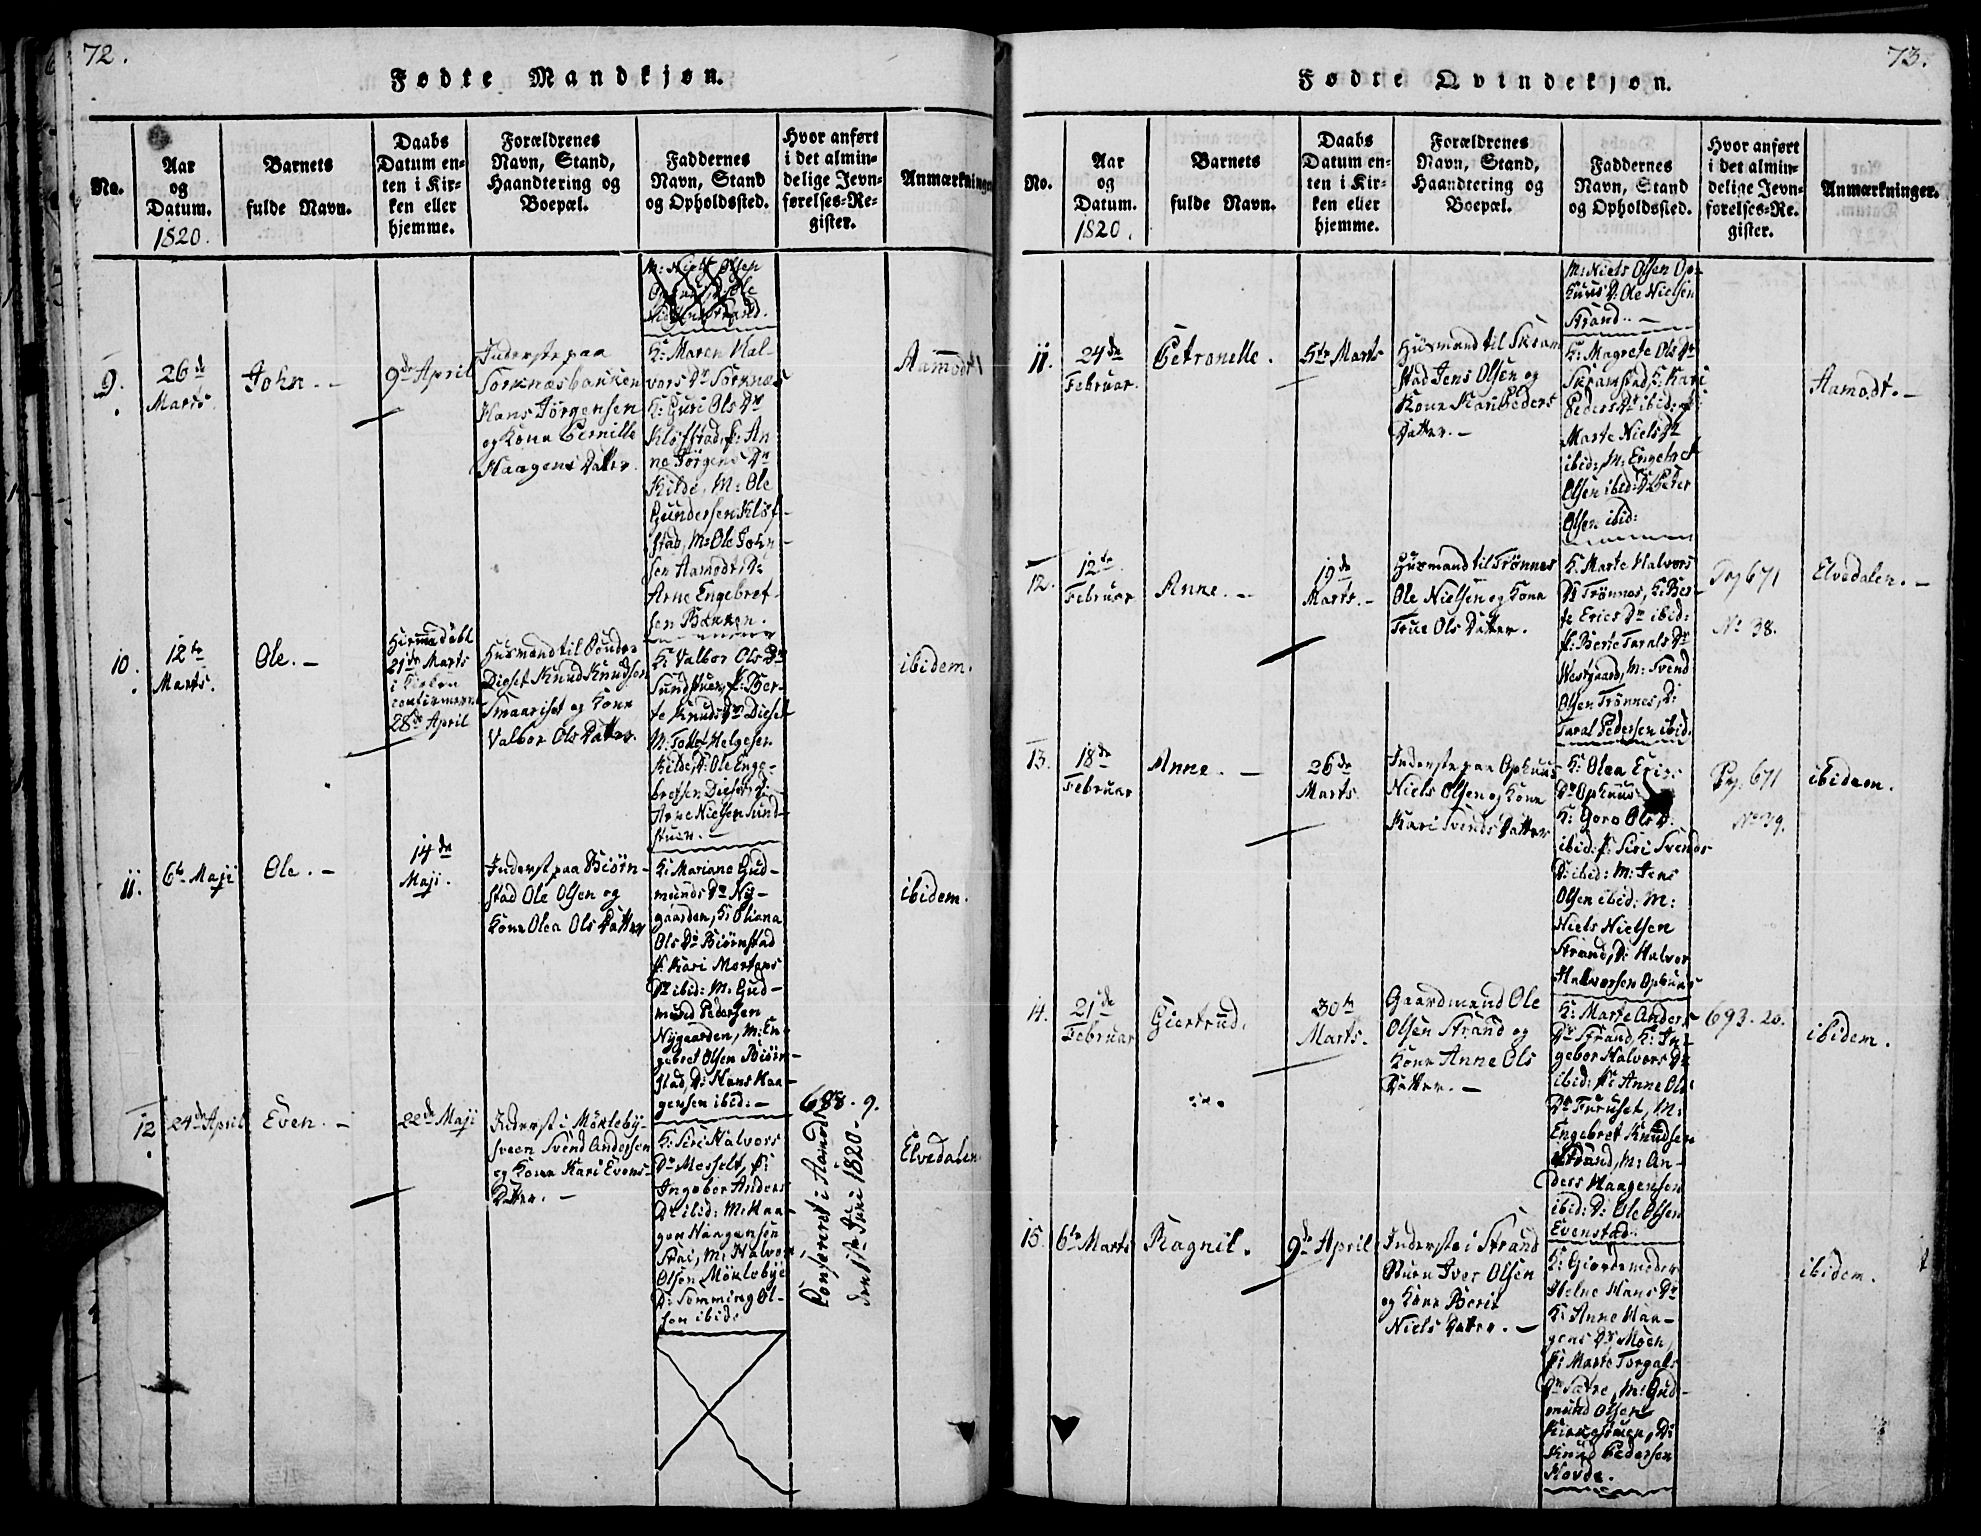 72.
Fødte Mandkjøn.
No.
Aar
og
Datum.
1820.
Barnets
fulde Navn.
Daabs
Datum en-
ten i Kir-
ken eller
hjemme.
Forældrenes
Navn, Stand,
Haandtering og
Boepæl.
Faddernes
Navn, Stand
og Opholdssted.
Hvor anført
i det almin-
delige Jevn-
førelses-Re-
gister.
Anmærkninger
M: Niels Olsen
Ole
Nielsen Strand.
9.
26de
Marts.
John. -
9de April
Inderste paa
Sorknæsbanken
Hans Jørgensen
og Kone Pernille
Haagens Datter.
K: Maren Hal-
vors Dr Sorknæs
K: Guri Ols Dr
Kløfstad, p: An
ne Jørgens Dr
Kilde, M: Ole
Gundersen Kløf-
stad, M: Ole John
sen Aamodt D:
Arne Engebret-
sen Banken.
Aamodt
10.
12te
Marts.
Ole. -
Hiemmedøbt
21de Marts
i Kirken
confirmeret
28de April
Husmand til Sønder
Dieset Knud Knudsen
Smaariset og Kone
Valbor Ols Datter.
K: Valbor Ols Dr
Sundstuen, p: Ber-
te Knuds Dr Dieset
M: Tollef Helgesen
Kilde, D: Ole Enge-
bretsen Dieset D:
Arne Nielsen Sund-
stuen. -
ibidem.
11.
6te Maji
Ole. -
14de
Maji.
Inderst paa Biørn-
stad Ole Olsen og
Kone Olea Ols Datter
K: Mariane Gud-
munds Dr Ny-
gaarden, K: Oliana
Ols Dr Biørnstad
p: Kari Mortens
Dr ibid: M: Gud-
mund Pedersen
Nygaarden, M: En-
gebret Olsen Biørn-
stad, D: Hans Haa-
gensen ibid: -
ibidem.
12
24de April
Even. -
22de Maji
Inderst i Møkleby-
sveen Svend Andersen
og Kone Kari Evens-
Datter. -
K: Siri Halvors
Dr Messelt, p:
Ingebor Anders
Dr ibid: M: Haa-
gen Haagensen
Strai, M: Halvor
Olsen Møklebye
D: Semming Ol-
sen ibid:
688. 9.
Confereret i Aamodt
den 1ste Juni 1820.
Elvedalen
73.
Fødte Qvindekjøn.
No.
Aar
og
Datum.
1820.
Barnets
fulde Navn.
Daabs
Datum en-
ten i Kir-
ken eller
hjemme.
Forældrenes
Navn, Stand,
Haandtering og
Boepæl.
Faddernes
Navn, Stand
og Opholdssted.
Hvor anført
i det almin-
delige Jevn-
førelses-Re-
gister.
Anmærkninger.
M: Niels Olsen Op-
huus D: Ole Nielsen
Strand. -
11.
24de
Februar.
Petronelle.
5te Marts
Husmand til Skram
stad Jens Olsen og
Kone Kari Peders
Datter. -
K: Magrete Ols Dr
Skramstad, K: Kari
Peders Dr ibid: p:
Marte Niels Dr
ibid: M: Engebret
Olsen ibid: D: Peter
Olsen ibid:
Aamodt. -
12.
12te
Februar
Anne. -
19de
Marts. -
Husmand til Trønnes
Ole Nielsen og Kone
True Ols Datter.
K: Marte Halvors
Dr Trønnes, K: Ber-
te Erics Dr ibid:
p: Berte Tarals Dr
Westgaard, M: Svend
Olsen Trønnes, D:
Taral Pedersen ibid.
Pag 671
No 38.
Elvedalen. -
13.
18de
Februar
Anne. -
26de
Marts.
Inderste paa Ophuus
Niels Olsen og Kone
Kari Svends Datter
K: Olea Erics
Dr Ophuus
K: Goro Ols D:
ibid: p: Siri Svends
D: ibid: M: Jens
Olsen ibid: M:
Niels Nielsen
Strand, D: Halvor
Halvorsen Ophuus
Pag. 671
No 39.
ibidem.
14.
21de
Februar
Giertrud.
30te
Marts.
Gaardmand Ole
Olsen Strand og
Kone Anne Ols
Datter. -
K: Marte Anders
Dr Strand, K: In-
gebor Halvors Dr
ibid: p: Anne Ols
Dr Furuset, M:
Engebret Knudsen
Strand, M: An-
ders Haagensen
ibid: D: Ole Olsen
Evenstad.
693. 20.
ibidem.
15.
6te Marts
Ragnil.
9de April
Inderste i Strand
Stuen Iver Olsen
og Kone Berit
Niels Datter. -
K: Giordemoder
Helne Hans Dr
K: Anne Haa-
gens Dr, Moen,
p: Marte Torgals
Dr Sætre, M: Gud-
mund Olsen
D:
Knud Pedersen
Hovde.
ibidem.